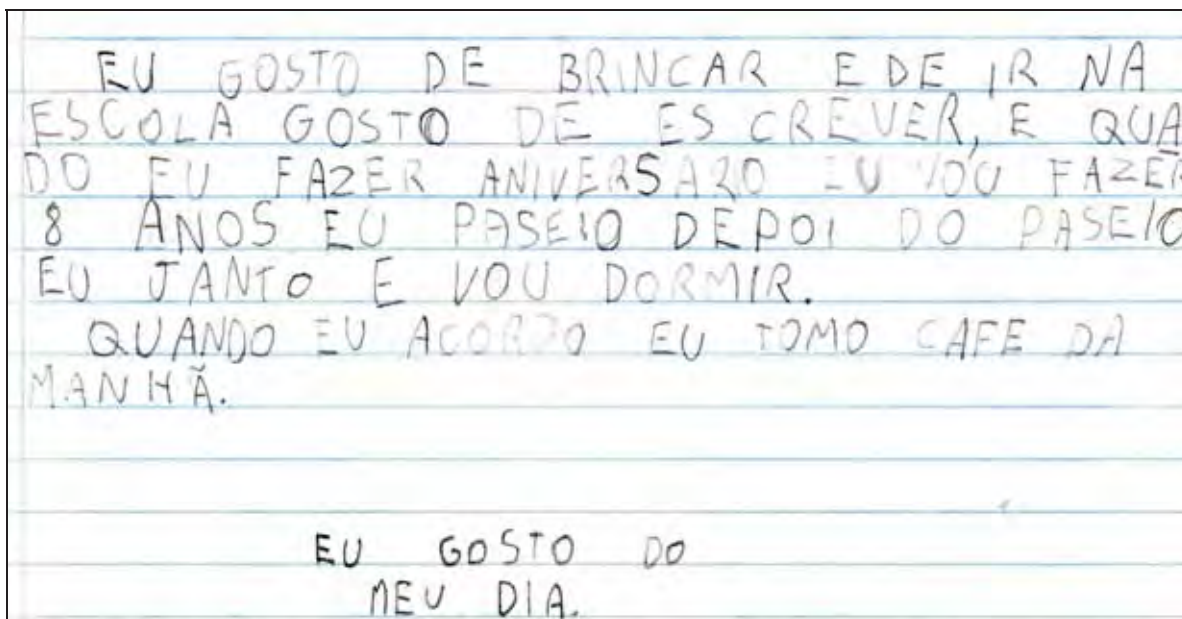 EU GOSTO DE BRINCAR E DE IR NA
ESCOLA GOSTO DE ESCREVER, E QUÃ
DO EU FAZER ANIVERSARO EU VOU FAZER
8 ANOS EU PASEIO DEPOI DO PASEIO
EU JANTO E VOU DORMIR.
QUANDO EU ACORDO EU TOMO CAFE DA
MANHÃ.
EU GOSTO DO
MEU DIA.